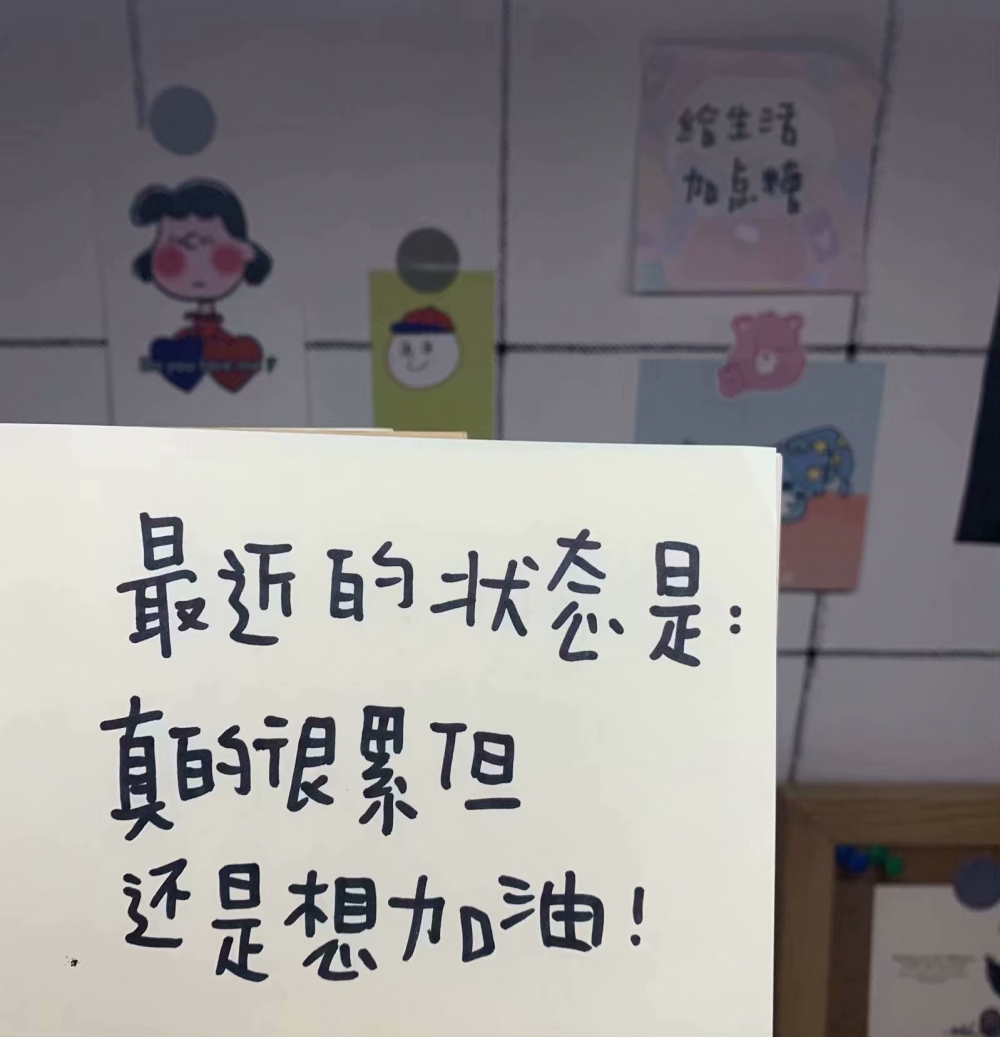 给生活
加点糖
Do you love me?
最近的状态是:
真的很累但
还是想加油!